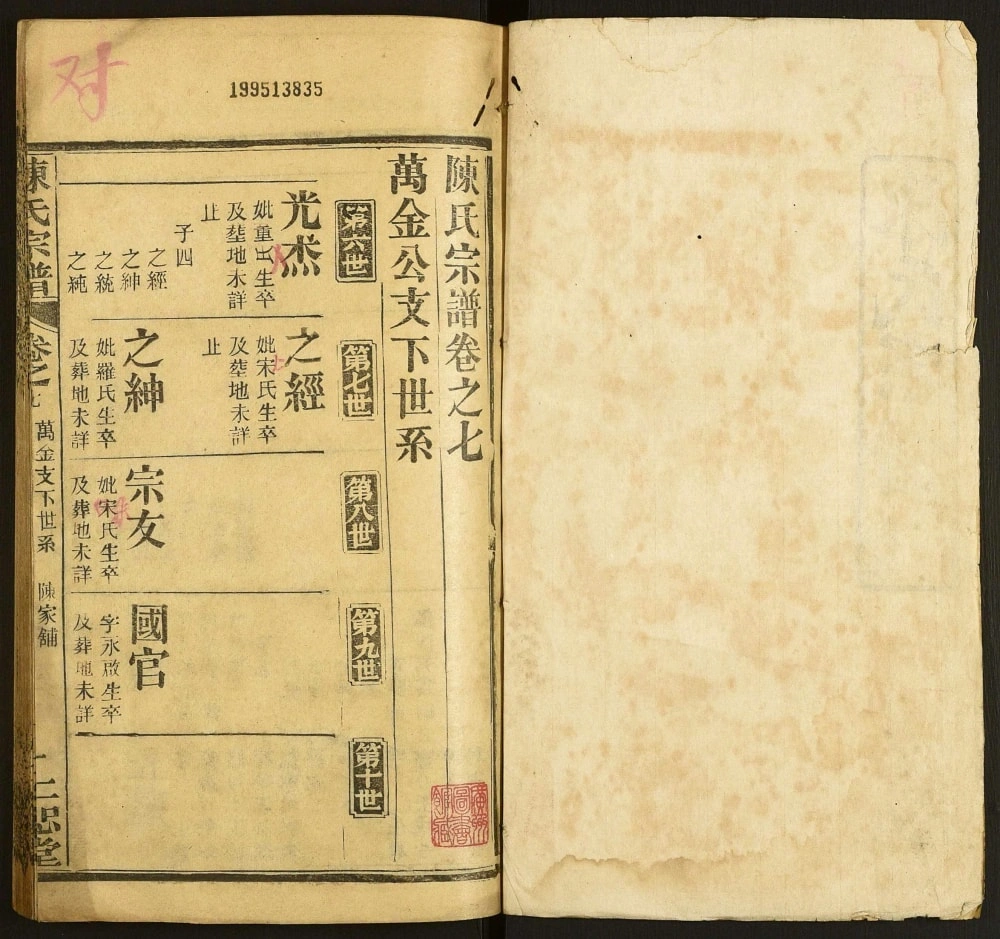 对
199513835
陳氏宗譜卷之七
萬金公支下世系
第六世
第七世
第八世
第九世
第十世
光杰
妣重出生卒
及塟地未詳
止
子四
之經
之紳
之統
之純
之經
妣宋氏生卒
及塟地未詳
止
之紳
妣羅氏生卒
及葬地未詳
宗友
妣宋氏生卒
及葬地未詳
國官
字永啟生卒
及葬地未詳
陳氏宗譜
卷之七
萬金支下世系
陳家舖
堂